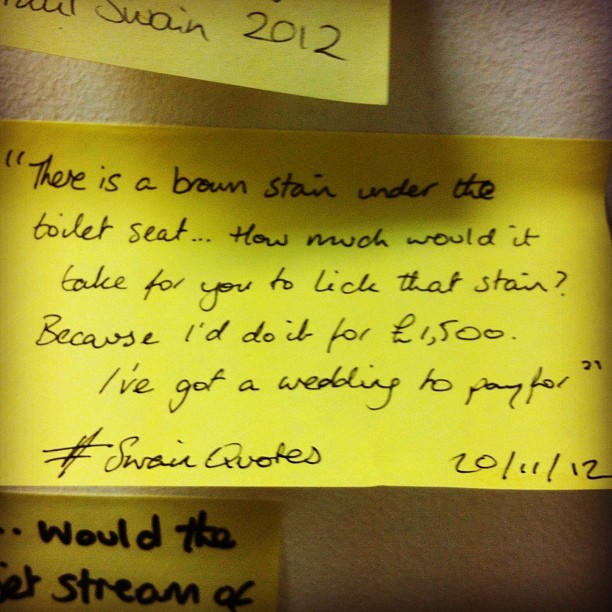 Swain 2012
"There is a brown stain under the
toilet seat... How much would it
take for you to lick that stain?
Because I'd do it for £1,500.
I've got a wedding to pay for"
#SwainQuotes
20/11/12
.. Would the
jet stream of